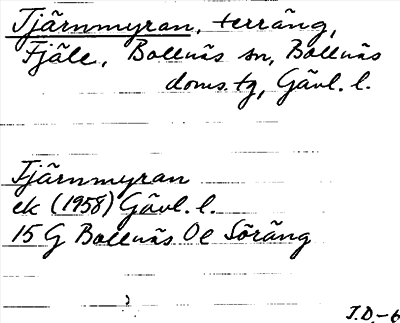 Tjärnmyran, terräng,
Fjäle, Bollnäs sn, Bollnäs
doms.tg, Gävl. l.
Tjärnmyran
ek (1958) Gävl. l.
15 G Bollnäs Öe Söräng
J.D.-6